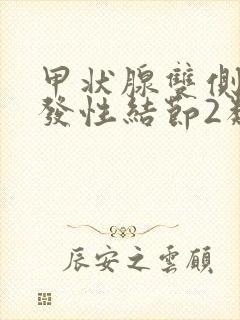 甲狀腺雙側
發性結節2
辰安之雲頤